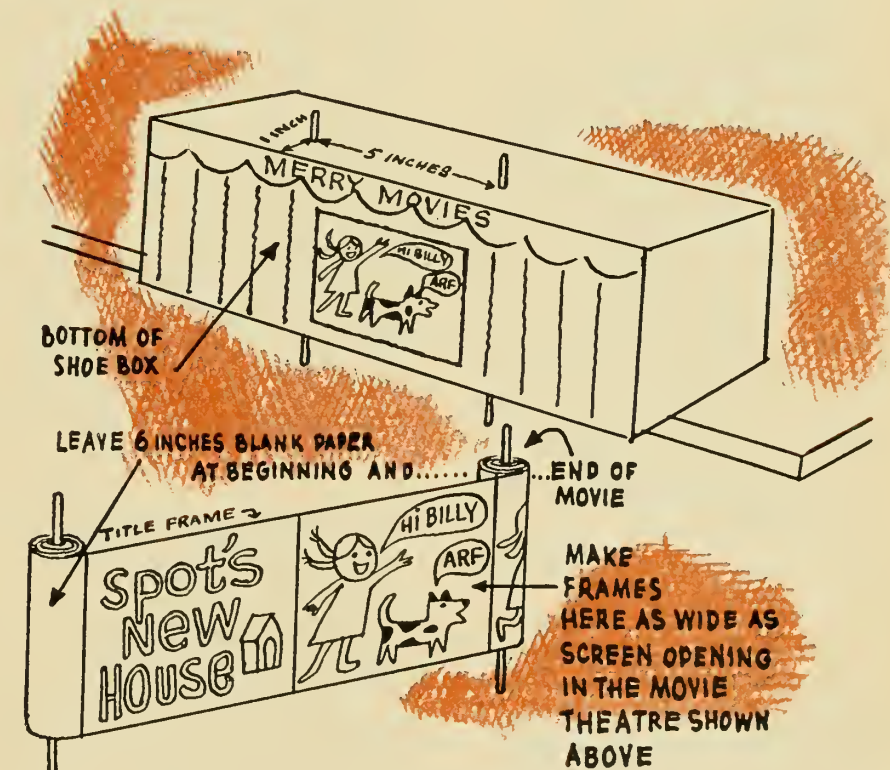 1 INCH
5 INCHES
MERRY MOVIES
HI BILLY
ARF
BOTTOM OF
SHOE BOX
LEAVE 6 INCHES BLANK PAPER
AT BEGINNING AND...... ...END OF
MOVIE
TITLE FRAME
SPOT'S
NEW
HOUSE
Hi BILLY
ARF
MAKE
FRAMES
HERE AS WIDE AS
SCREEN OPENING
IN THE MOVIE
THEATRE SHOWN
ABOVE